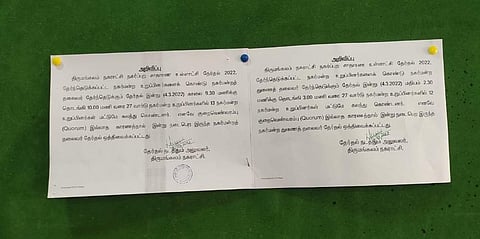 அறிவிப்பு
திருமங்கலம் நகராட்சி நகர்ப்புற சாதாரண உள்ளாட்சி தேர்தல் 2022,
தேர்ந்தெடுக்கப்பட்ட நகர்மன்ற உறுப்பினர்களைக் கொண்டு நகர்மன்றத்
தலைவர் தேர்ந்தெடுக்கும் தேர்தல் இன்று (4.3.2022) காலை 9.30 மணிக்கு
தொடங்கி 10.00 மணி வரை 27 வார்டு நகர்மன்ற உறுப்பினர்களில் 13 நகர்மன்ற
உறுப்பினர்கள் மட்டுமே கலந்து கொண்டனர். எனவே குறைவெண்வரம்பு
(Quorum) இல்லாத காரணத்தால் இன்று நடைபெற இருந்த நகர்மன்றத்
தலைவர் தேர்தல் ஒத்திவைக்கப்பட்டது.
தேர்தல் நடத்தும் அலுவலர்,
திருமங்கலம் நகராட்சி.
அறிவிப்பு
திருமங்கலம் நகராட்சி நகர்ப்புற சாதாரண உள்ளாட்சி தேர்தல் 2022,
தேர்ந்தெடுக்கப்பட்ட நகர்மன்ற உறுப்பினர்களைக் கொண்டு நகர்மன்ற
துணைத் தலைவர் தேர்ந்தெடுக்கும் தேர்தல் இன்று (4.3.2022) மதியம் 2.30
மணிக்கு தொடங்கி 3.00 மணி வரை 27 வார்டு நகர்மன்ற உறுப்பினர்களில் 12
நகர்மன்ற உறுப்பினர்கள் மட்டுமே கலந்து கொண்டனர். எனவே
குறைவெண்வரம்பு (Quorum) இல்லாத காரணத்தால் இன்று நடைபெற இருந்த
நகர்மன்ற துணைத் தலைவர் தேர்தல் ஒத்திவைக்கப்பட்டது.
தேர்தல் நடத்தும் அலுவலர்,
திருமங்கலம் நகராட்சி.